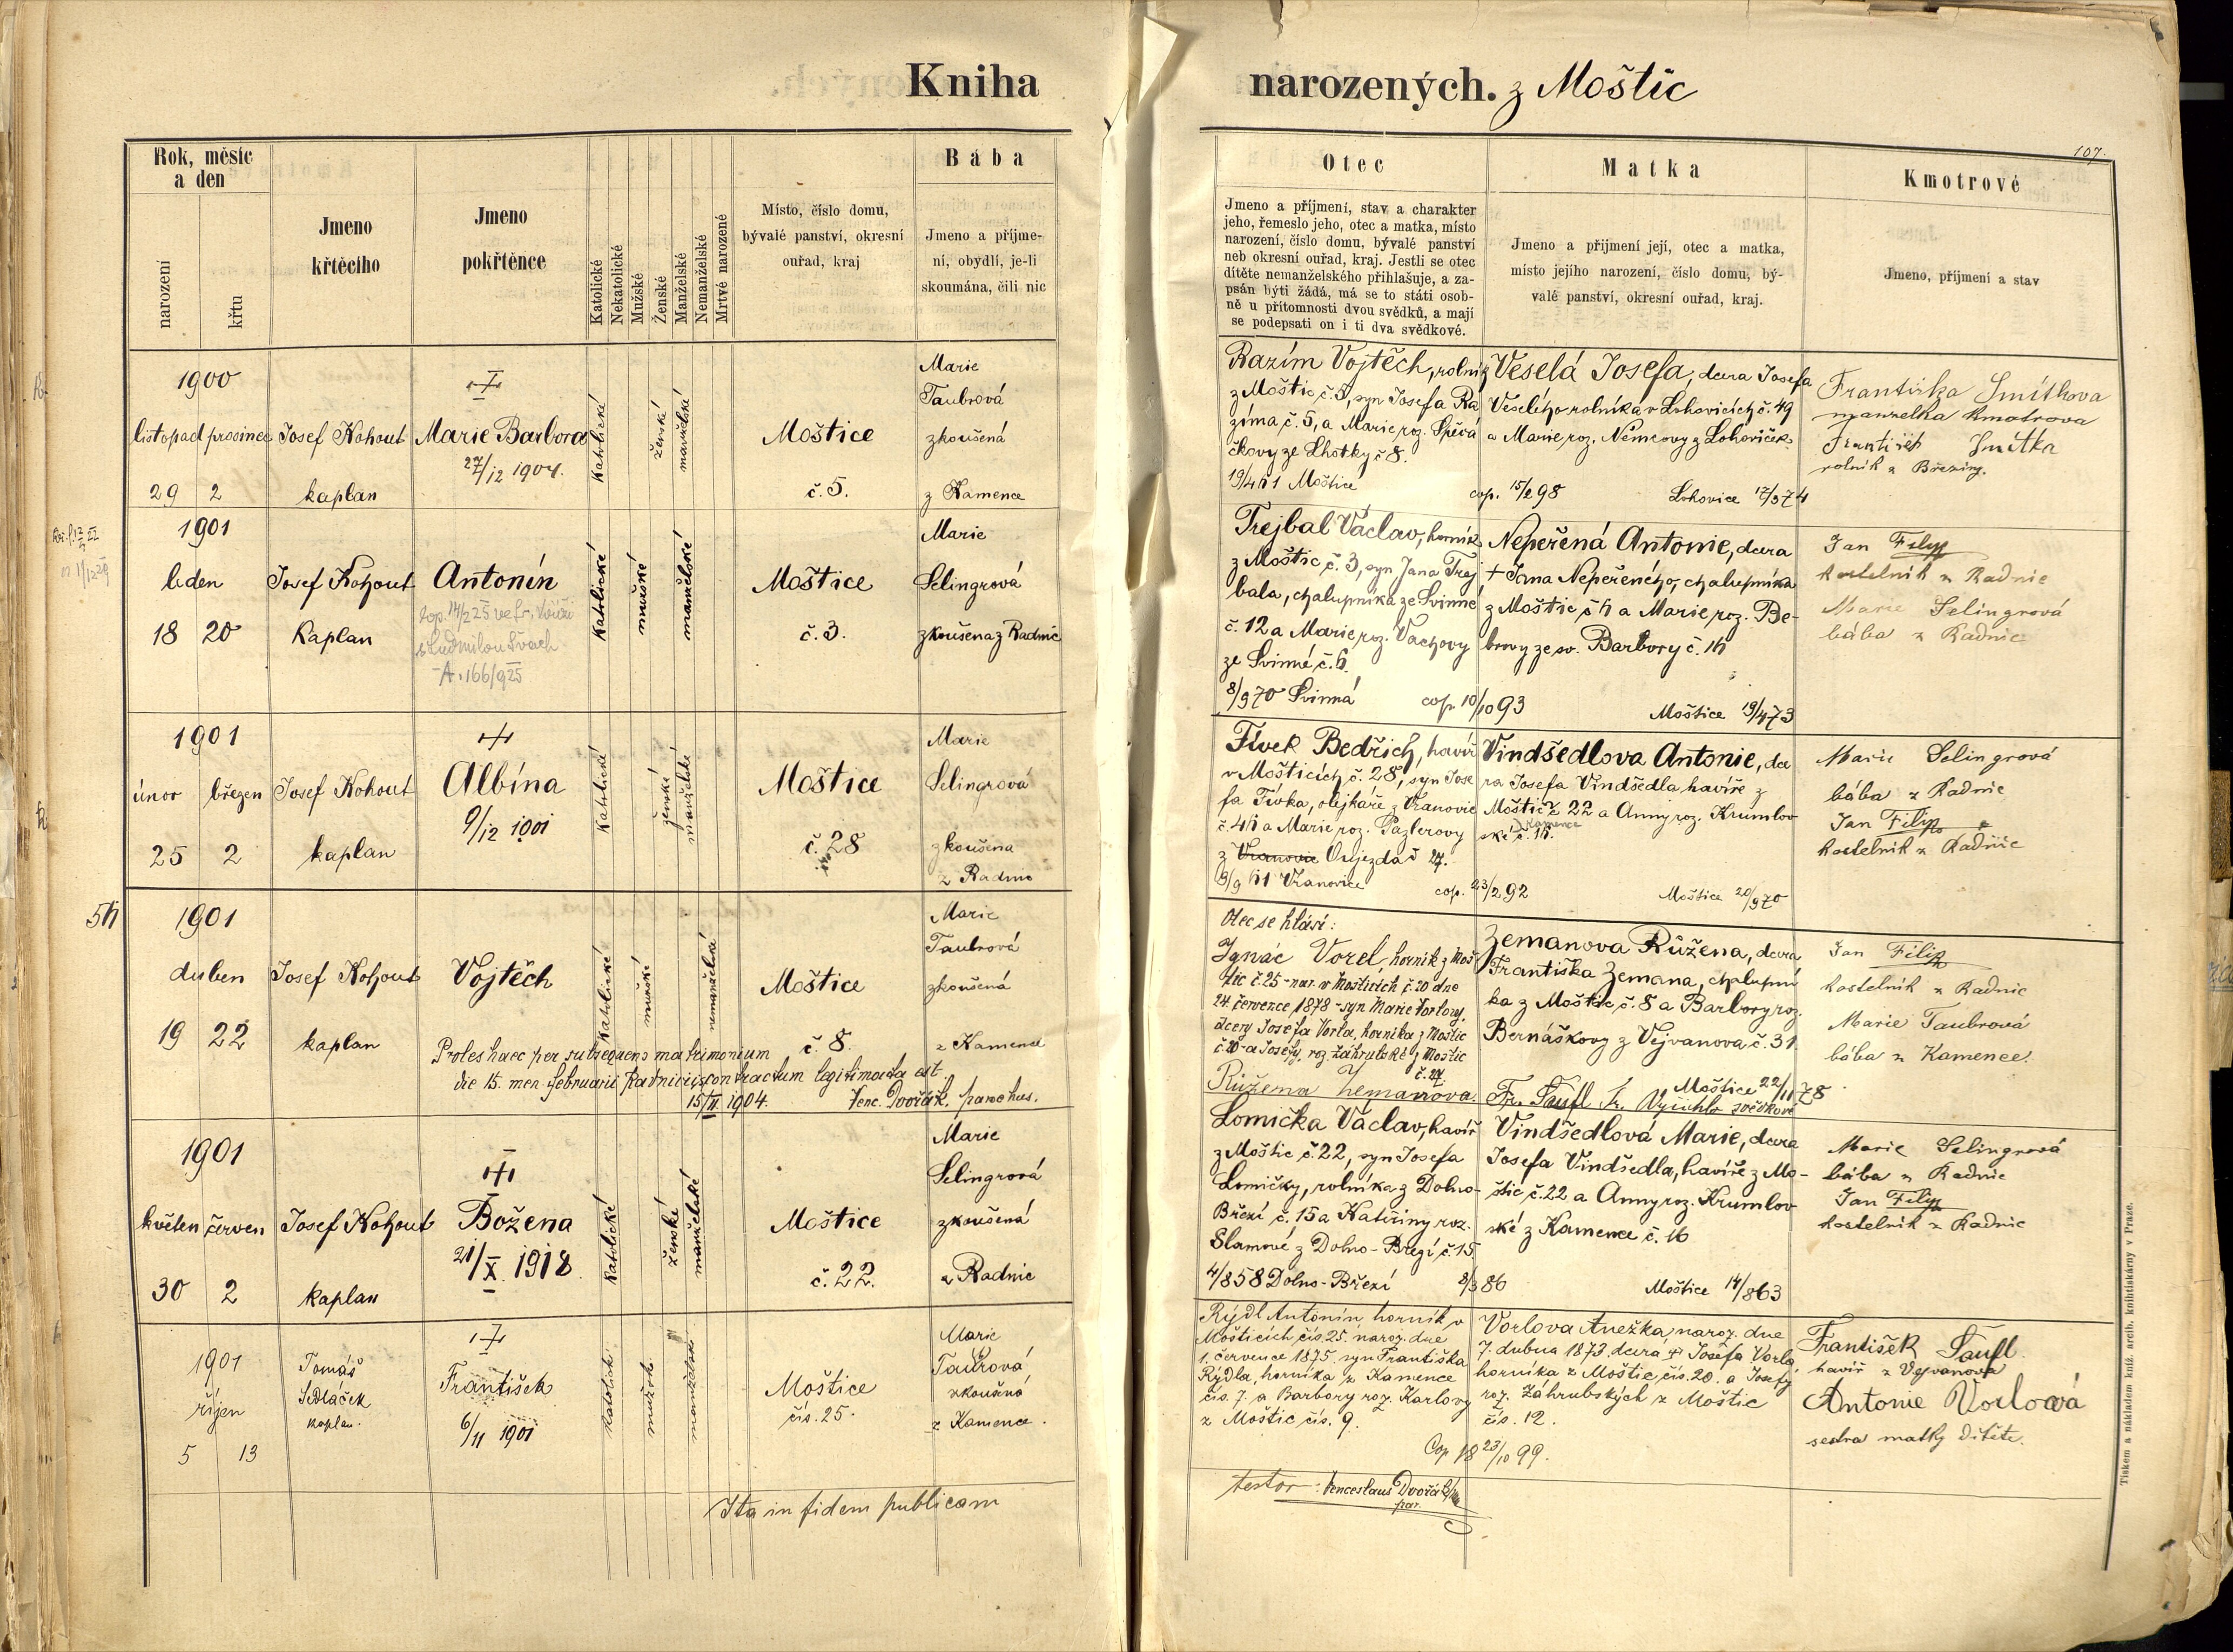 Kniha narozených. z Moštic
107.
Rok, měsíc a den
narození
křtu
Jmeno křtěcího
Jmeno pokřtěnce
Katolické
Nekatolické
Mužské
Ženské
Manželské
Nemanželské
Mrtvě narozené
Místo, číslo domu,
bývalé panství, okresní
ouřad, kraj
Bába
Jmeno a příjme-
ní, obydlí, je-li
skoumána, čili nic
Otec
Jmeno a příjmení, stav a charakter
jeho, řemeslo jeho, otec a matka, místo
narození, číslo domu, bývalé panství
neb okresní ouřad, kraj. Jestli se otec
dítěte nemanželského přihlašuje, a za-
psán býti žádá, má se to státi osob-
ně u přítomnosti dvou svědků, a mají
se podepsati on i ti dva svědkové.
Matka
Jmeno a přijmení její, otec a matka,
místo jejího narození, číslo domu, bý-
valé panství, okresní ouřad, kraj.
Kmotrové
Jmeno, příjmení a stav
1900
listopad prosinec
29 2
Josef Kohout
kaplan
Marie Barbora
27/12 1904.
katolické
ženské
manželské
Moštice
č. 5.
Marie
Taubrová
zkoušená
z Kamence
Razím Vojtěch, rolník
z Moštic č. 5, syn Josefa Ra
zíma č. 5, a Marie roz. Spěvá
čkovy ze Lhotky č 8.
19/4 61 Moštice
cop. 15/2 98
Veselá Josefa, dcera Josefa
Veselého rolníka v Lohovicích č. 49
a Marie roz. Němcovy z Lohoviček
Lohovice 17/3 74
Františka Smítkova
manželka kmotrova
František Smítka
rolník z Březiny.
1901
leden
18 20
Josef Kohout
Kaplan
Antonín
cop. 14/2 25 ve
s Ludmilou Švach
A. 166/925
katolické
mužské
manželské
Moštice
č. 3.
Marie
Selingrová
zkoušena z Radnic
Trejbal Václav, horník
z Moštic č. 3, syn Jana Trej
bala, chalupníka ze Svinné
č. 12 a Marie roz. Vachovy
ze Svinné č. 6.
8/9 70 Svinná
cop. 10/10 93
Nepeřená Antonie, dcera
† Jana Nepeřeného, chalupníka
z Moštic č 6 a Marie roz. Be-
brovy ze sv. Barbory č. 16
Moštice 19/4 73
Jan Filip
kostelník z Radnic
Marie Selingrová
bába z Radnic
1901
únor březen
25 2
Josef Kohout
kaplan
Albína
9/12 1901
katolické
ženské
manželské
Moštice
č. 28
Marie
Selingrová
zkoušena
z Radnic
Fívek Bedřich, havíř
v Mošticích č. 28, syn Jose
fa Fívka, olejkáře z Vranovic
č. 46 a Marie roz. Pazlerovy
z Vranovic Oujezda č 27.
9/9 61 Vranovice
cop. 23/2 92
Vindšedlova Antonie, dce
ra Josefa Vindšedla, havíře z
Moštic č 22 a Anny roz. Krumlov
ské z Kamence č. 16.
Moštice 20/9 70
Marie Selingrová
bába z Radnic
Jan Filip
kostelník z Radnic
56
1901
duben
19 22
Josef Kohout
kaplan
Vojtěch
katolické
mužské
nemanželské
Moštice
č. 8.
Marie
Taubrová
zkoušená
z Kamence
Proles haec per subsequens matrimonium
die 15. men. februarii Radnicii contractum legitimata est.
15/II. 1904. Venc. Dvořák, parochus.
Otec se hlásí:
Ignác Vorel, horník z Moš
tic č. 25 - nar. v Mošticích č. 20 dne
24. července 1878 - syn Marie Vorlovy,
dcery Josefa Vorla, horníka z Moštic
č. 20 - a Josefy, roz. Záhrubské z Moštic
č. 27.
Růžena Zemanova.
Zemanova Růžena, dcera
Františka Zemana, chalupní
ka z Moštic č. 8 a Barbory roz.
Bernáškovy z Vejvanova č. 31.
Moštice 22/11 78
Fr. Šaufl Fr. Vyčichlo svědkové
Jan Filip
kostelník z Radnic
Marie Taubrová
bába z Kamence.
1901
květen červen
30 2
Josef Kohout
kaplan
Božena
21/X. 1918
katolické
ženské
manželské
Moštice
č. 22.
Marie
Selingrová
zkoušená
z Radnic
Lomička Václav, havíř
z Moštic č. 22, syn Josefa
Lomičky, rolníka z Dolno-
Březí č. 15 a Kateřiny roz.
Slamové z Dolno-Březí č. 15.
4/8 58 Dolno-Březí
8/3 86
Vindšedlová Marie, dcera
Josefa Vindšedla, havíře z Mo-
štic č. 22 a Anny roz. Krumlov
ské z Kamence č. 16
Moštice 14/8 63
Marie Selingrová
bába z Radnic
Jan Filip
kostelník z Radnic
1901
říjen
5 13
Tomáš
Sedláček
kaplan.
František
6/11 1901
katolick.
mužsk.
manželsk.
Moštice
čís. 25.
Marie
Taubrová
zkoušná
z Kamence.
Rýdl Antonín, horník v
Mošticích čís. 25. naroz. dne
1. července 1875. syn Františka
Rýdla, horníka z Kamence
čís. 7. a Barbory roz. Karlovy
z Moštic čís. 9.
Cop 18 23/10 99.
Vorlova Anežka, naroz. dne
7. dubna 1873 dcera † Josefa Vorla,
horníka z Moštic, čís. 20. a Josefy
roz. Záhrubských z Moštic
čís. 12.
František Šaufl.
havíř z Vejvanova
Antonie Vorlová
sestra matky dítěte.
Ita in fidem publicam
testor: Venceslaus Dvořák
par.
Tiskem a nákladem kníž. arcib. knihtiskárny v Praze.